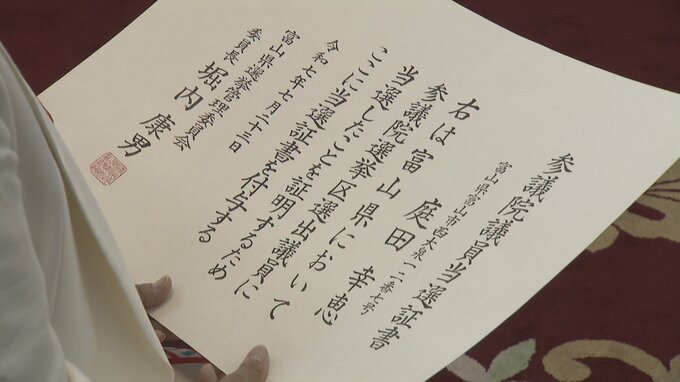 参議院議員当選証書
富山県富山市西大泉一二番七号
庭田幸恵
右は富山県において
参議院選挙区選出議員に
当選したことを証明するため
ここに当選証書を付与する
令和七年七月二十三日
富山県選挙管理委員会
委員長 堀内康男